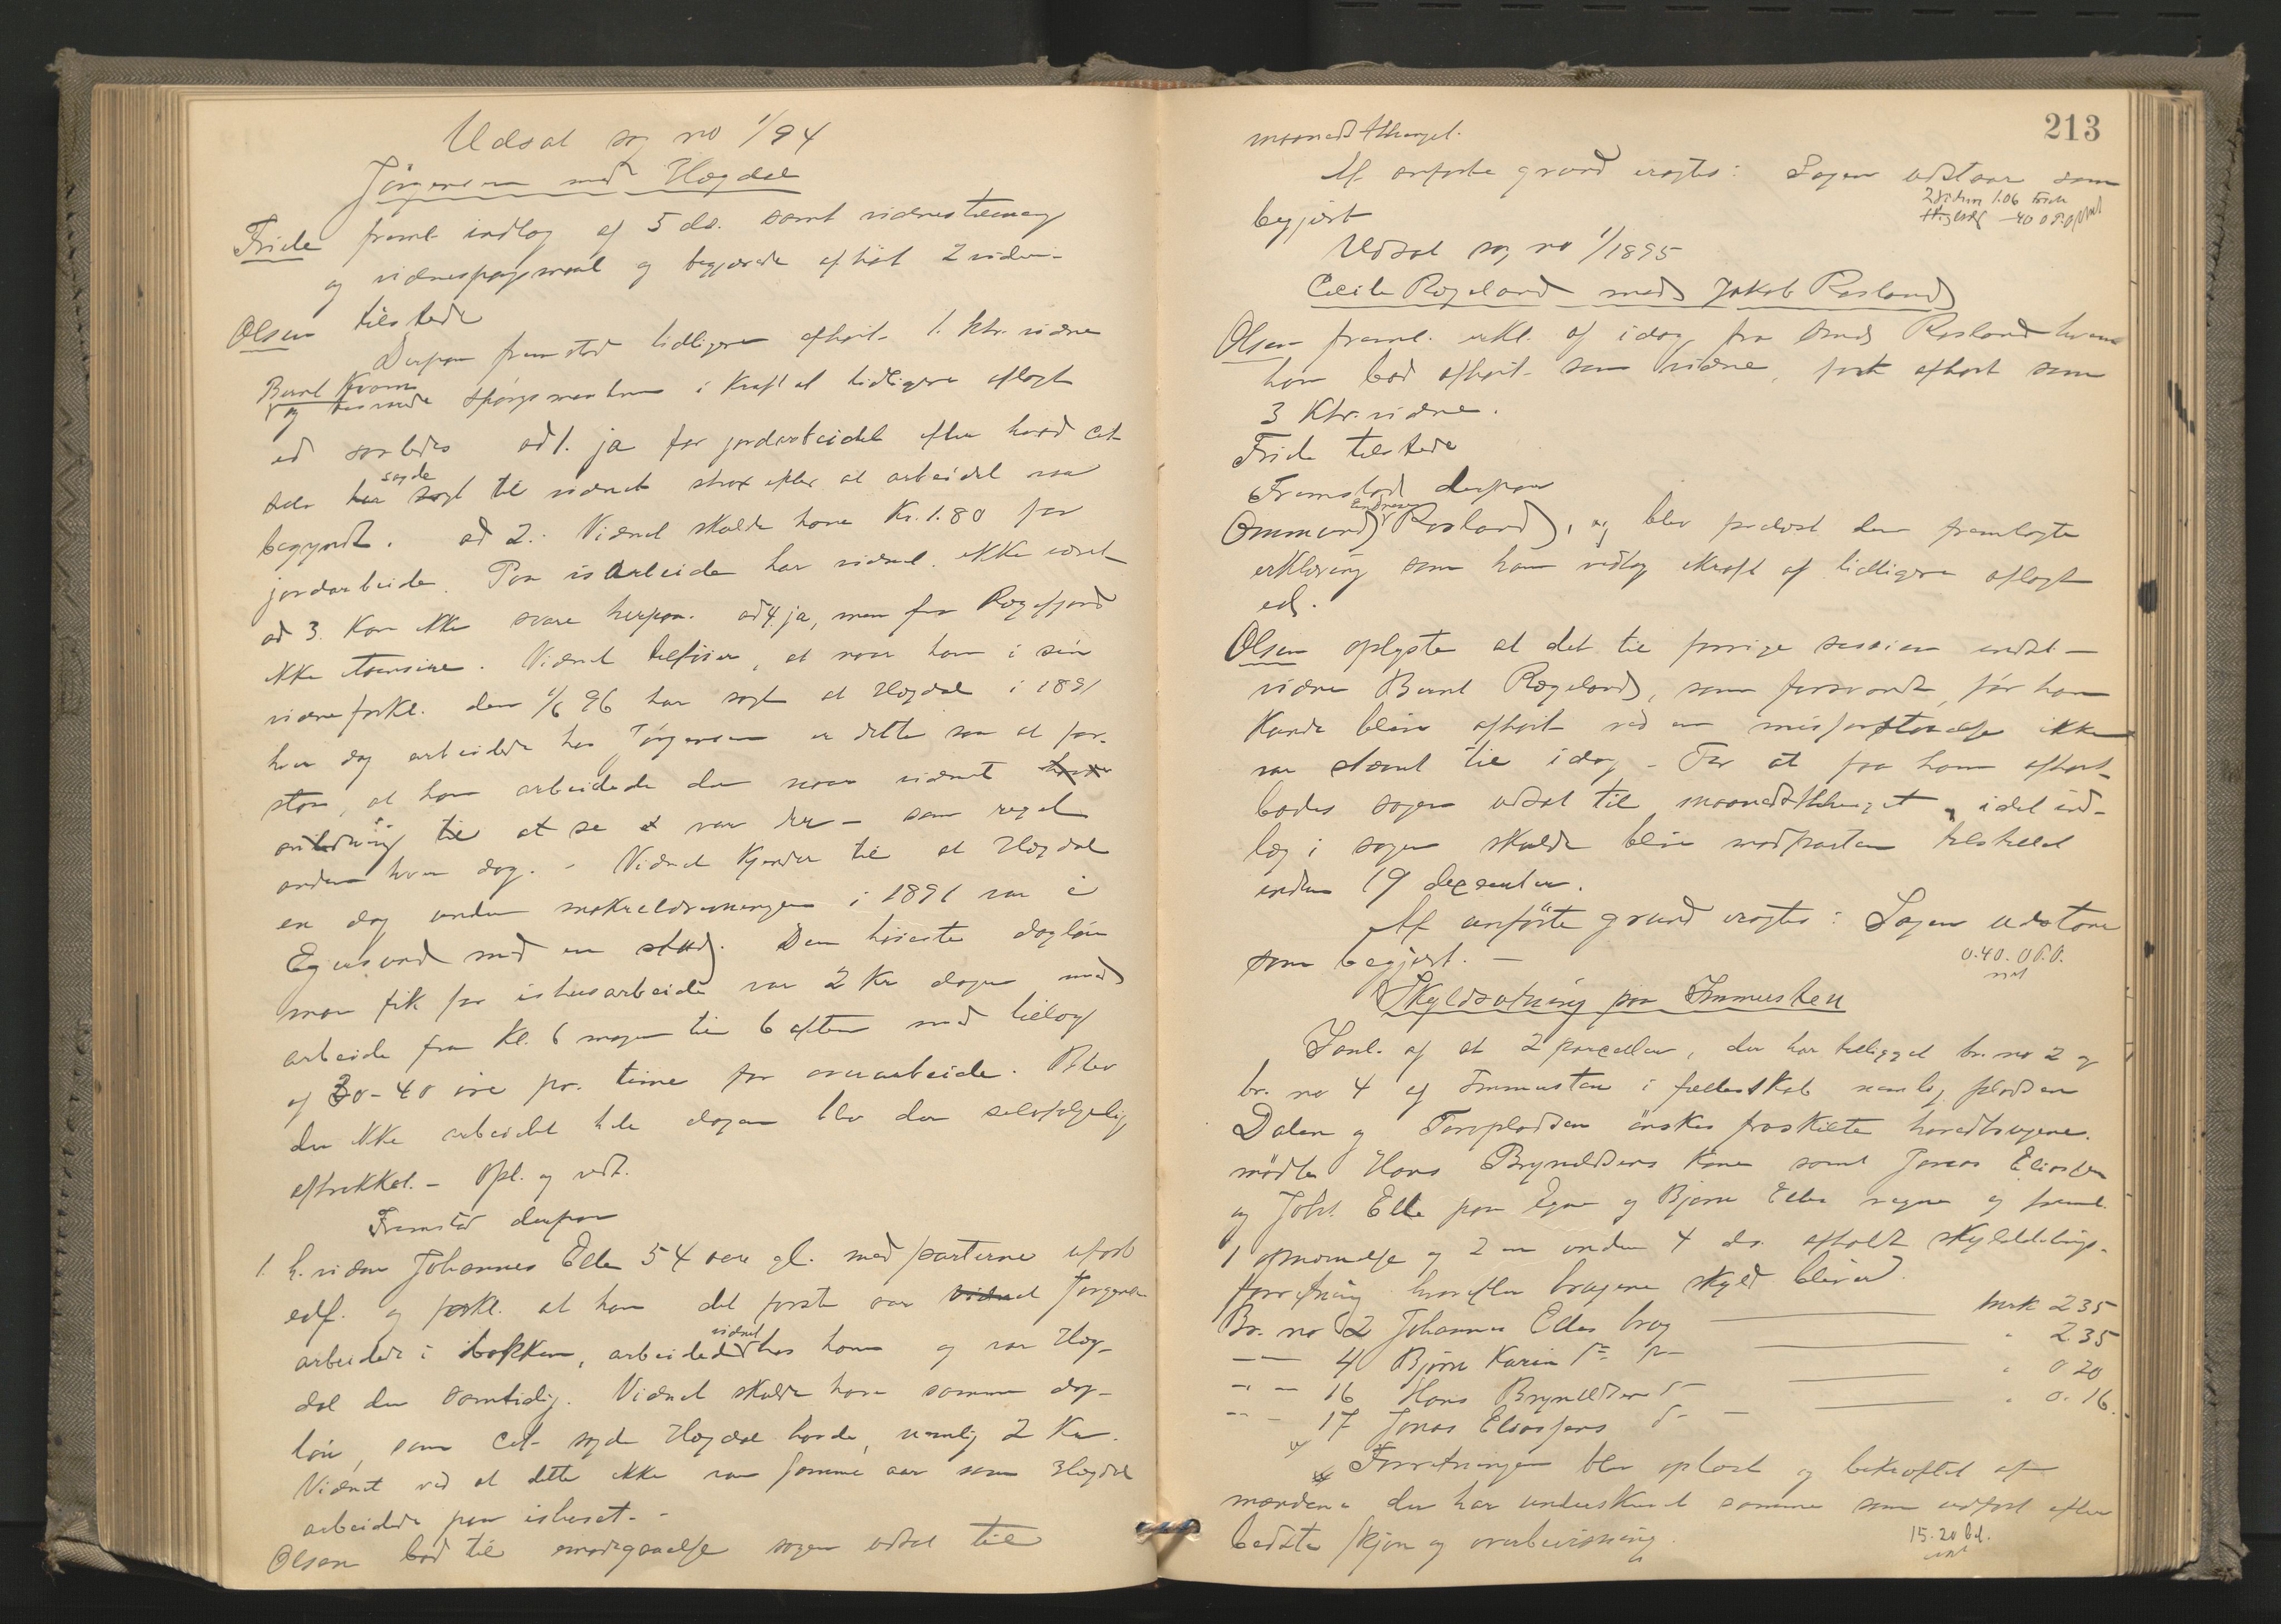 Udsat sag no 1/94
Jörgensen mod Hægdal
Friele freml. indlæg af 5 ds. samt vidnestevning
og vidnespørgsmaal og begjærede afhört 2 vidner.
Olsen tilstede
Derpaa fremstod tidligere afhört 1. ktr. vidne
Bernt Kvam
og besvarede spörgsmaalene i kraft af tidligere aflagt
ed saaledes ad 1. ja for jordarbeidet efter hvad cit-
sagde til vidnet strax efter at arbeidet var
begyndt. ad 2. Vidnet skulde have Kr. 1.80 for
jordarbeide. Paa isarbeide har vidnet ikke været
ad 3. Kan ikke svare herpaa. ad 4. ja, men fra Rægefjord
ikke. Vidnet tilföier, at naar han i sin
vidneforkl. den 1/6 96 har sagt at Hægdal i 1891
hver dag arbeidede hos Jörgensen er dette saa at for-
staa, at han arbeidede der naar vidnet havde
anledning til at se var der - som regel
anden hver dag. - Vidnet kjender til at Hægdal
en dag under makreldrivningen i 1891 var i
Egersund med en stud. Den höieste daglön
man fik for ishusarbeide var 2 Kr dagen med
arbeide fra Kl. 6 morgen til 6 aften med tillæg
af 30-40 öre pr. time for overarbeide. Blev
der ikke arbeidet hele dagen blev der selvfølgelig
aftrækket. - Opl. og vedt.
Fremstod derpaa
1. h. vidne Johannes Elle 54 aar gl. med parterne ubesl.
edf. og forkl. at han det første aar vidnet Jörgensen
arbeidede i bakken, arbeidede vidnet hos ham og var Hæg-
dal der samtidig. Vidnet skulde have samme dag-
lön, som Cit. sagde Hægdal havde, nemlig 2 Kr.
Vidnet ved at dette ikke var samme aar som Hægdal
arbeidede paa ishuset. -
Olsen bad til imødegaaelse sagen udsat til
213
maanedsthinget.
Af anførte grund eragtes: Sagen udstaar som
begjært
2 vidner 1.06
40
Udsat sag no 1/1895
Cecilie Rægeland mod Jakob Rosland
Olsen freml. erkl. af idag fra Omund Rosland hvem
han bad afhört som vidne, forts afhört som
3 Ktr. vidne.
Friele tilstede
Fremstod derpaa
Endresen
Ommund Rosland, og blev forelæst den fremlagte
erklæring som han vedtog i kraft af tidligere aflagt
ed.
Olsen oplyste at det til forrige session indst-
vidne Bernt Rægeland, som forsvandt, før han
kunde blive afhört ved en misforstaaelse ikke
var stævnt til idag - For at faa ham afhört
bades sagen udsat til maanedsthinget, idet ind-
læg i sagen skulde blive modparten tilstillet
inden 19 december.
Af anförte grund eragtes: Sagen udstaar
som begjært. -
0.40. O.P.O.
Skyldsætning paa Immersten
Sanl. af at 2 parceller, der har tilligget br. no 2 og
br. no 4 af Immersten i fælleskab nemlig pladsen
Dalen og Torvpladsen önskes fraskilte hovedbrugene.
mødte Hans Bryneldsens kone samt Jonas Eliassen
og Johs. Elle paa egne og Björn Elles vegne og freml.
1 opnævnelse og 2 en under 4 ds. afholdt skylddelings-
forretning hvorefter brugene skyld bliver.
Br. no 2 Johannes Elles brug — mrk 2.35
— 4 Björn Karin ds. — " 2.35
— 16 Hans Bryneldsen ds — " 0.20
— 17 Jonas Eliassens ds — " 0.16.
Forretningen blev oplæst og bekræftet af
mændene der har underskrevet samme som udført efter
bedste skjön og overbevisning
15.20 bet.